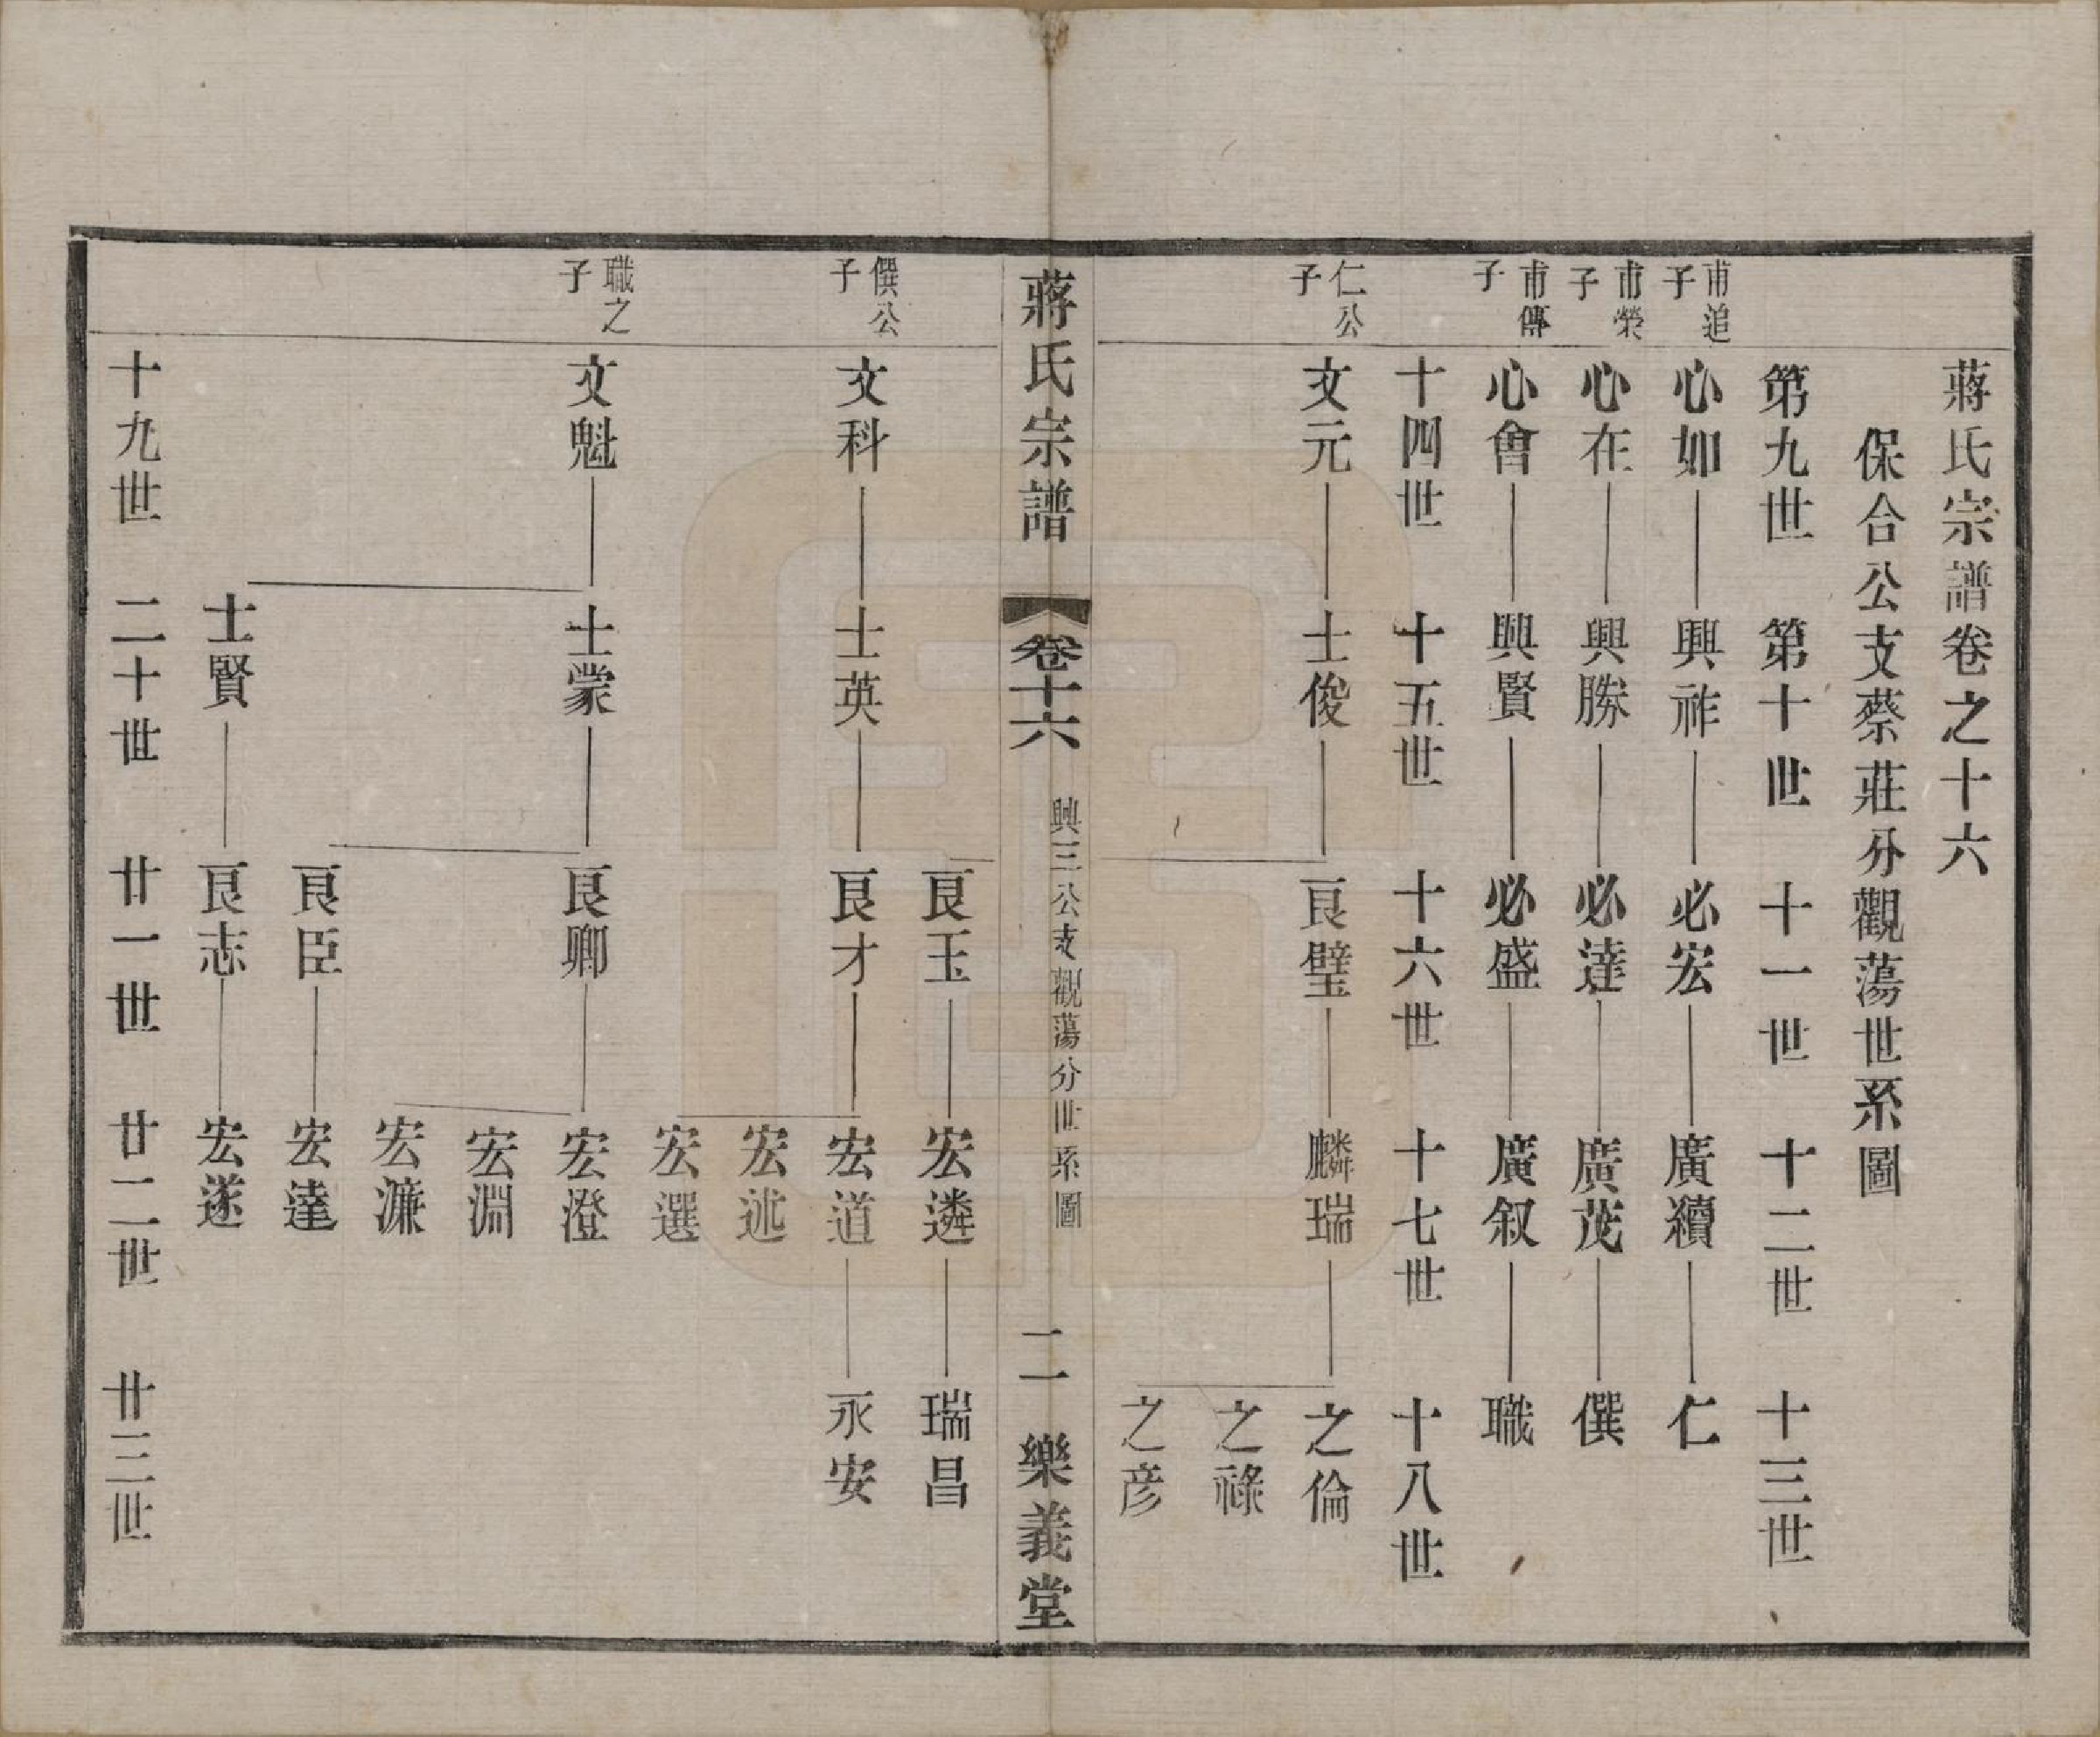 蔣氏宗譜卷之十六
保合公支蔡莊分觀蕩世系圖
第九世 第十世 十一世 十二世 十三世
甫追子 心如 興祚 必宏 廣續 仁
甫榮子 心在 興勝 必達 廣茂 僎
甫傳子 心會 興賢 必盛 廣叙 職
十四世 十五世 十六世 十七世 十八世
仁公子 文元 士俊 良璧 麟瑞 之倫
之祿
之彦
蔣氏宗譜 卷十六 興三公支觀蕩分世系圖 二 樂義堂
良玉 宏遴 瑞昌
僎公子 文科 士英 良才 宏道 永安
宏述
宏選
職之子 文魁 士蒙 良卿 宏澄
宏淵
宏濂
良臣 宏達
士賢 良志 宏遂
十九世 二十世 廿一世 廿二世 廿三世